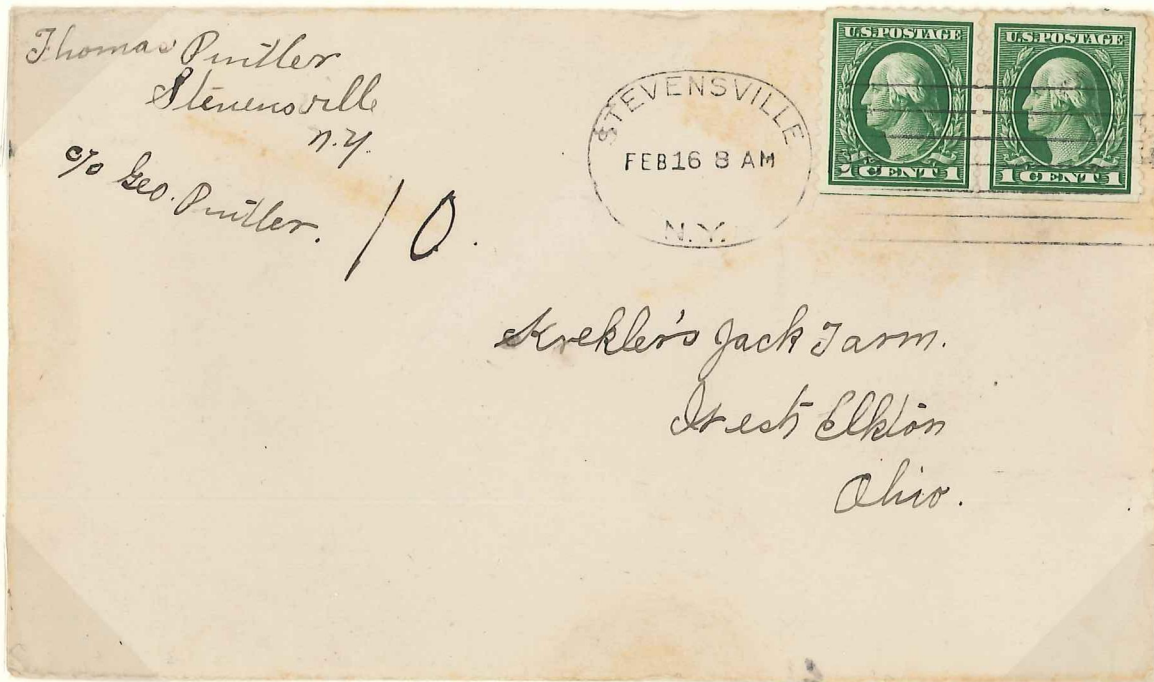 Thomas Puitler
Stevensville
N.Y.
c/o Geo. Puitler.
10.
STEVENSVILLE
FEB 16 8 AM
N.Y.
U.S. POSTAGE
1 CENT 1
U.S. POSTAGE
1 CENT 1
Krekler's Jack Farm.
West Elkton
Ohio.